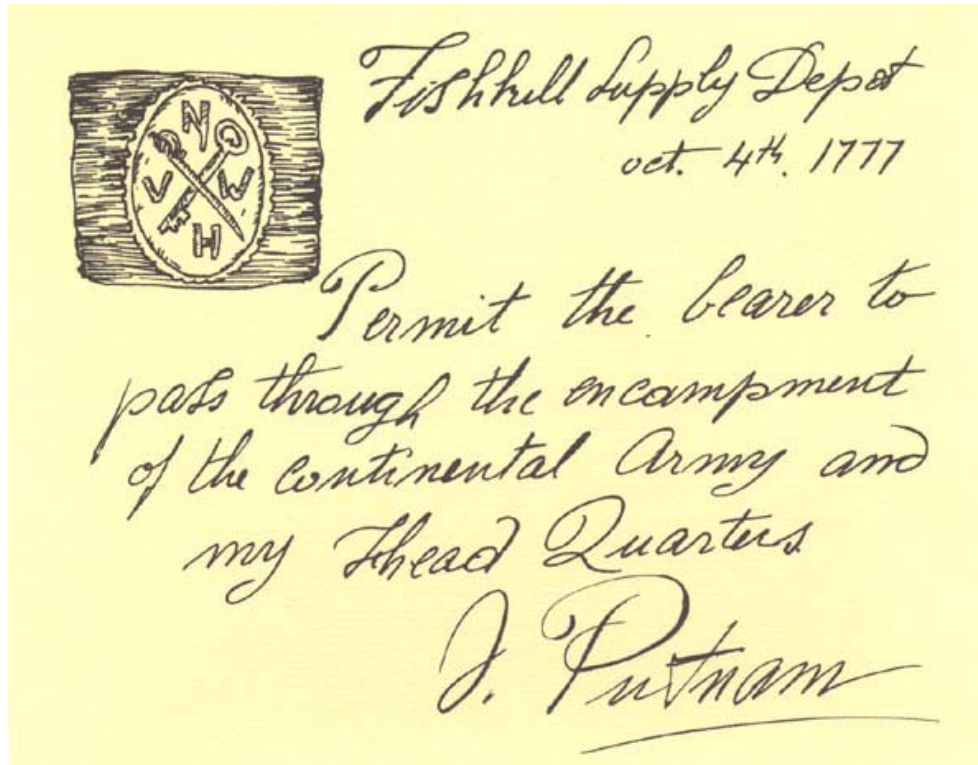 Fishkill Supply Depot
oct. 4th. 1777
N
V W
H
Permit the bearer to
pass through the encampment
of the continental Army and
my Head Quarters
J. Putnam